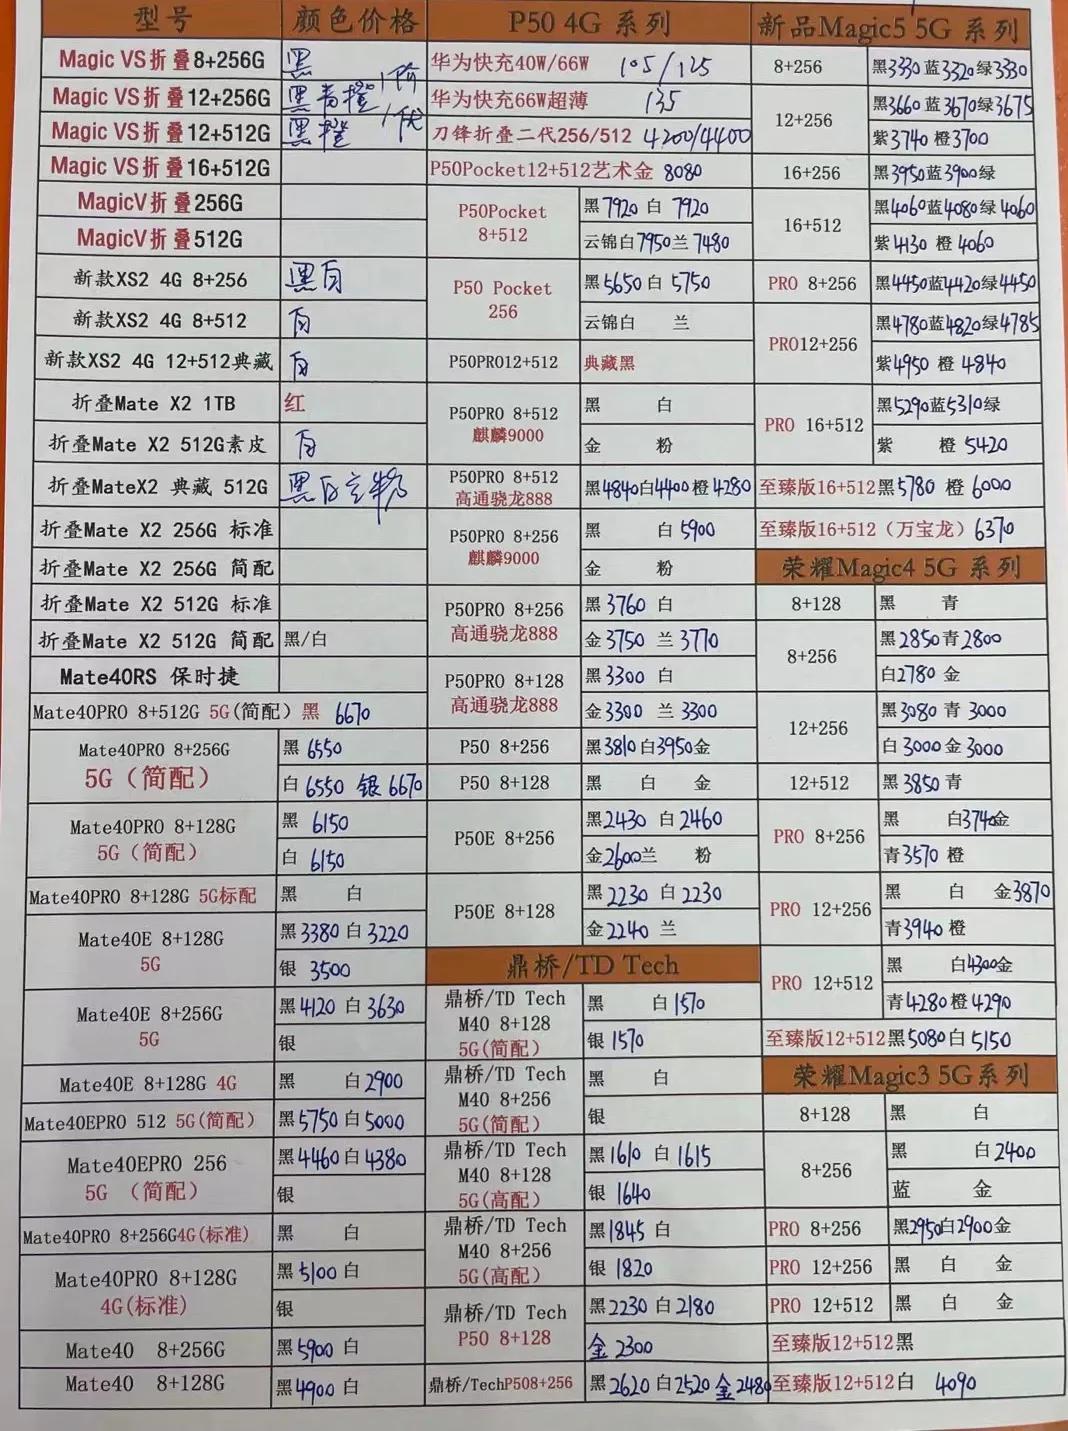 型号 颜色价格
Magic VS折叠8+256G 黑
Magic VS折叠12+256G 黑青橙 1价
Magic VS折叠12+512G 黑橙 1优
Magic VS折叠16+512G
MagicV折叠256G
MagicV折叠512G
新款XS2 4G 8+256 黑白
新款XS2 4G 8+512 白
新款XS2 4G 12+512典藏 白
折叠Mate X2 1TB 红
折叠Mate X2 512G素皮 白
折叠MateX2 典藏 512G 黑白
折叠Mate X2 256G 标准
折叠Mate X2 256G 简配
折叠Mate X2 512G 标准
折叠Mate X2 512G 简配 黑/白
Mate40RS 保时捷
Mate40PRO 8+512G 5G(简配) 黑 6670
Mate40PRO 8+256G
5G(简配)
黑 6550
白 6550 银 6670
Mate40PRO 8+128G
5G(简配)
黑 6150
白 6150
Mate40PRO 8+128G 5G标配 黑 白
Mate40E 8+128G
5G
黑3380 白3220
银 3500
Mate40E 8+256G
5G
黑4120 白3630
银
Mate40E 8+128G 4G 黑 白2900
Mate40EPRO 512 5G(简配) 黑5750白5000
Mate40EPRO 256
5G (简配)
黑4460白4380
银
Mate40PRO 8+256G4G(标准) 黑 白
Mate40PRO 8+128G
4G(标准)
黑5100 白
银
Mate40 8+256G 黑5900 白
Mate40 8+128G 黑4900 白
P50 4G 系列
华为快充40W/66W 105/125
华为快充66W超薄 135
刀锋折叠二代256/512 4200/4400
P50Pocket12+512艺术金 8080
P50Pocket
8+512
黑7920 白 7920
云锦白7950兰 7480
P50 Pocket
256
黑5650 白 5750
云锦白 兰
P50PRO12+512 典藏黑
P50PRO 8+512
麒麟9000
黑 白
金 粉
P50PRO 8+512
高通骁龙888
黑4840白4400橙4280
P50PRO 8+256
麒麟9000
黑 白5900
金 粉
P50PRO 8+256
高通骁龙888
黑3760 白
金3750 兰 3770
P50PRO 8+128
高通骁龙888
黑3300 白
金3300 兰 3300
P50 8+256 黑3810白3950金
P50 8+128 黑 白 金
P50E 8+256
黑2430 白2460
金2600兰 粉
P50E 8+128
黑2230 白2230
金2240 兰
鼎桥/TD Tech
鼎桥/TD Tech
M40 8+128
5G(简配)
黑 白1570
银 1570
鼎桥/TD Tech
M40 8+256
5G(简配)
黑 白
银
鼎桥/TD Tech
M40 8+128
5G(高配)
黑1610 白1615
银 1640
鼎桥/TD Tech
M40 8+256
5G(高配)
黑1845 白
银 1820
鼎桥/TD Tech
P50 8+128
黑2230 白2180
金 2300
鼎桥/TechP508+256 黑2620白2520金2480
新品Magic5 5G 系列
8+256 黑3330蓝3320绿3330
12+256
黑3660蓝3670绿3675
紫3740 橙3700
16+256 黑3950蓝3900绿
16+512
黑4060蓝4080绿4060
紫4130 橙 4060
PRO 8+256 黑4450蓝4420绿4450
PRO12+256
黑4780蓝4820绿4785
紫4950 橙 4840
PRO 16+512
黑5290蓝5310绿
紫 橙 5420
至臻版16+512黑5780 橙 6000
至臻版16+512（万宝龙）6370
荣耀Magic4 5G 系列
8+128 黑 青
8+256
黑2850青2800
白2780 金
12+256
黑3080 青 3000
白3000金3000
12+512 黑3850青
PRO 8+256
黑 白3740金
青3570 橙
PRO 12+256
黑 白 金3870
青3940 橙
PRO 12+512
黑 白4300金
青4280橙4290
至臻版12+512黑5080白5150
荣耀Magic3 5G系列
8+128 黑 白
8+256
黑 白2400
蓝 金
PRO 8+256 黑2950白2900金
PRO 12+256 黑 白 金
PRO 12+512 黑 白 金
至臻版12+512黑
至臻版12+512白 4090